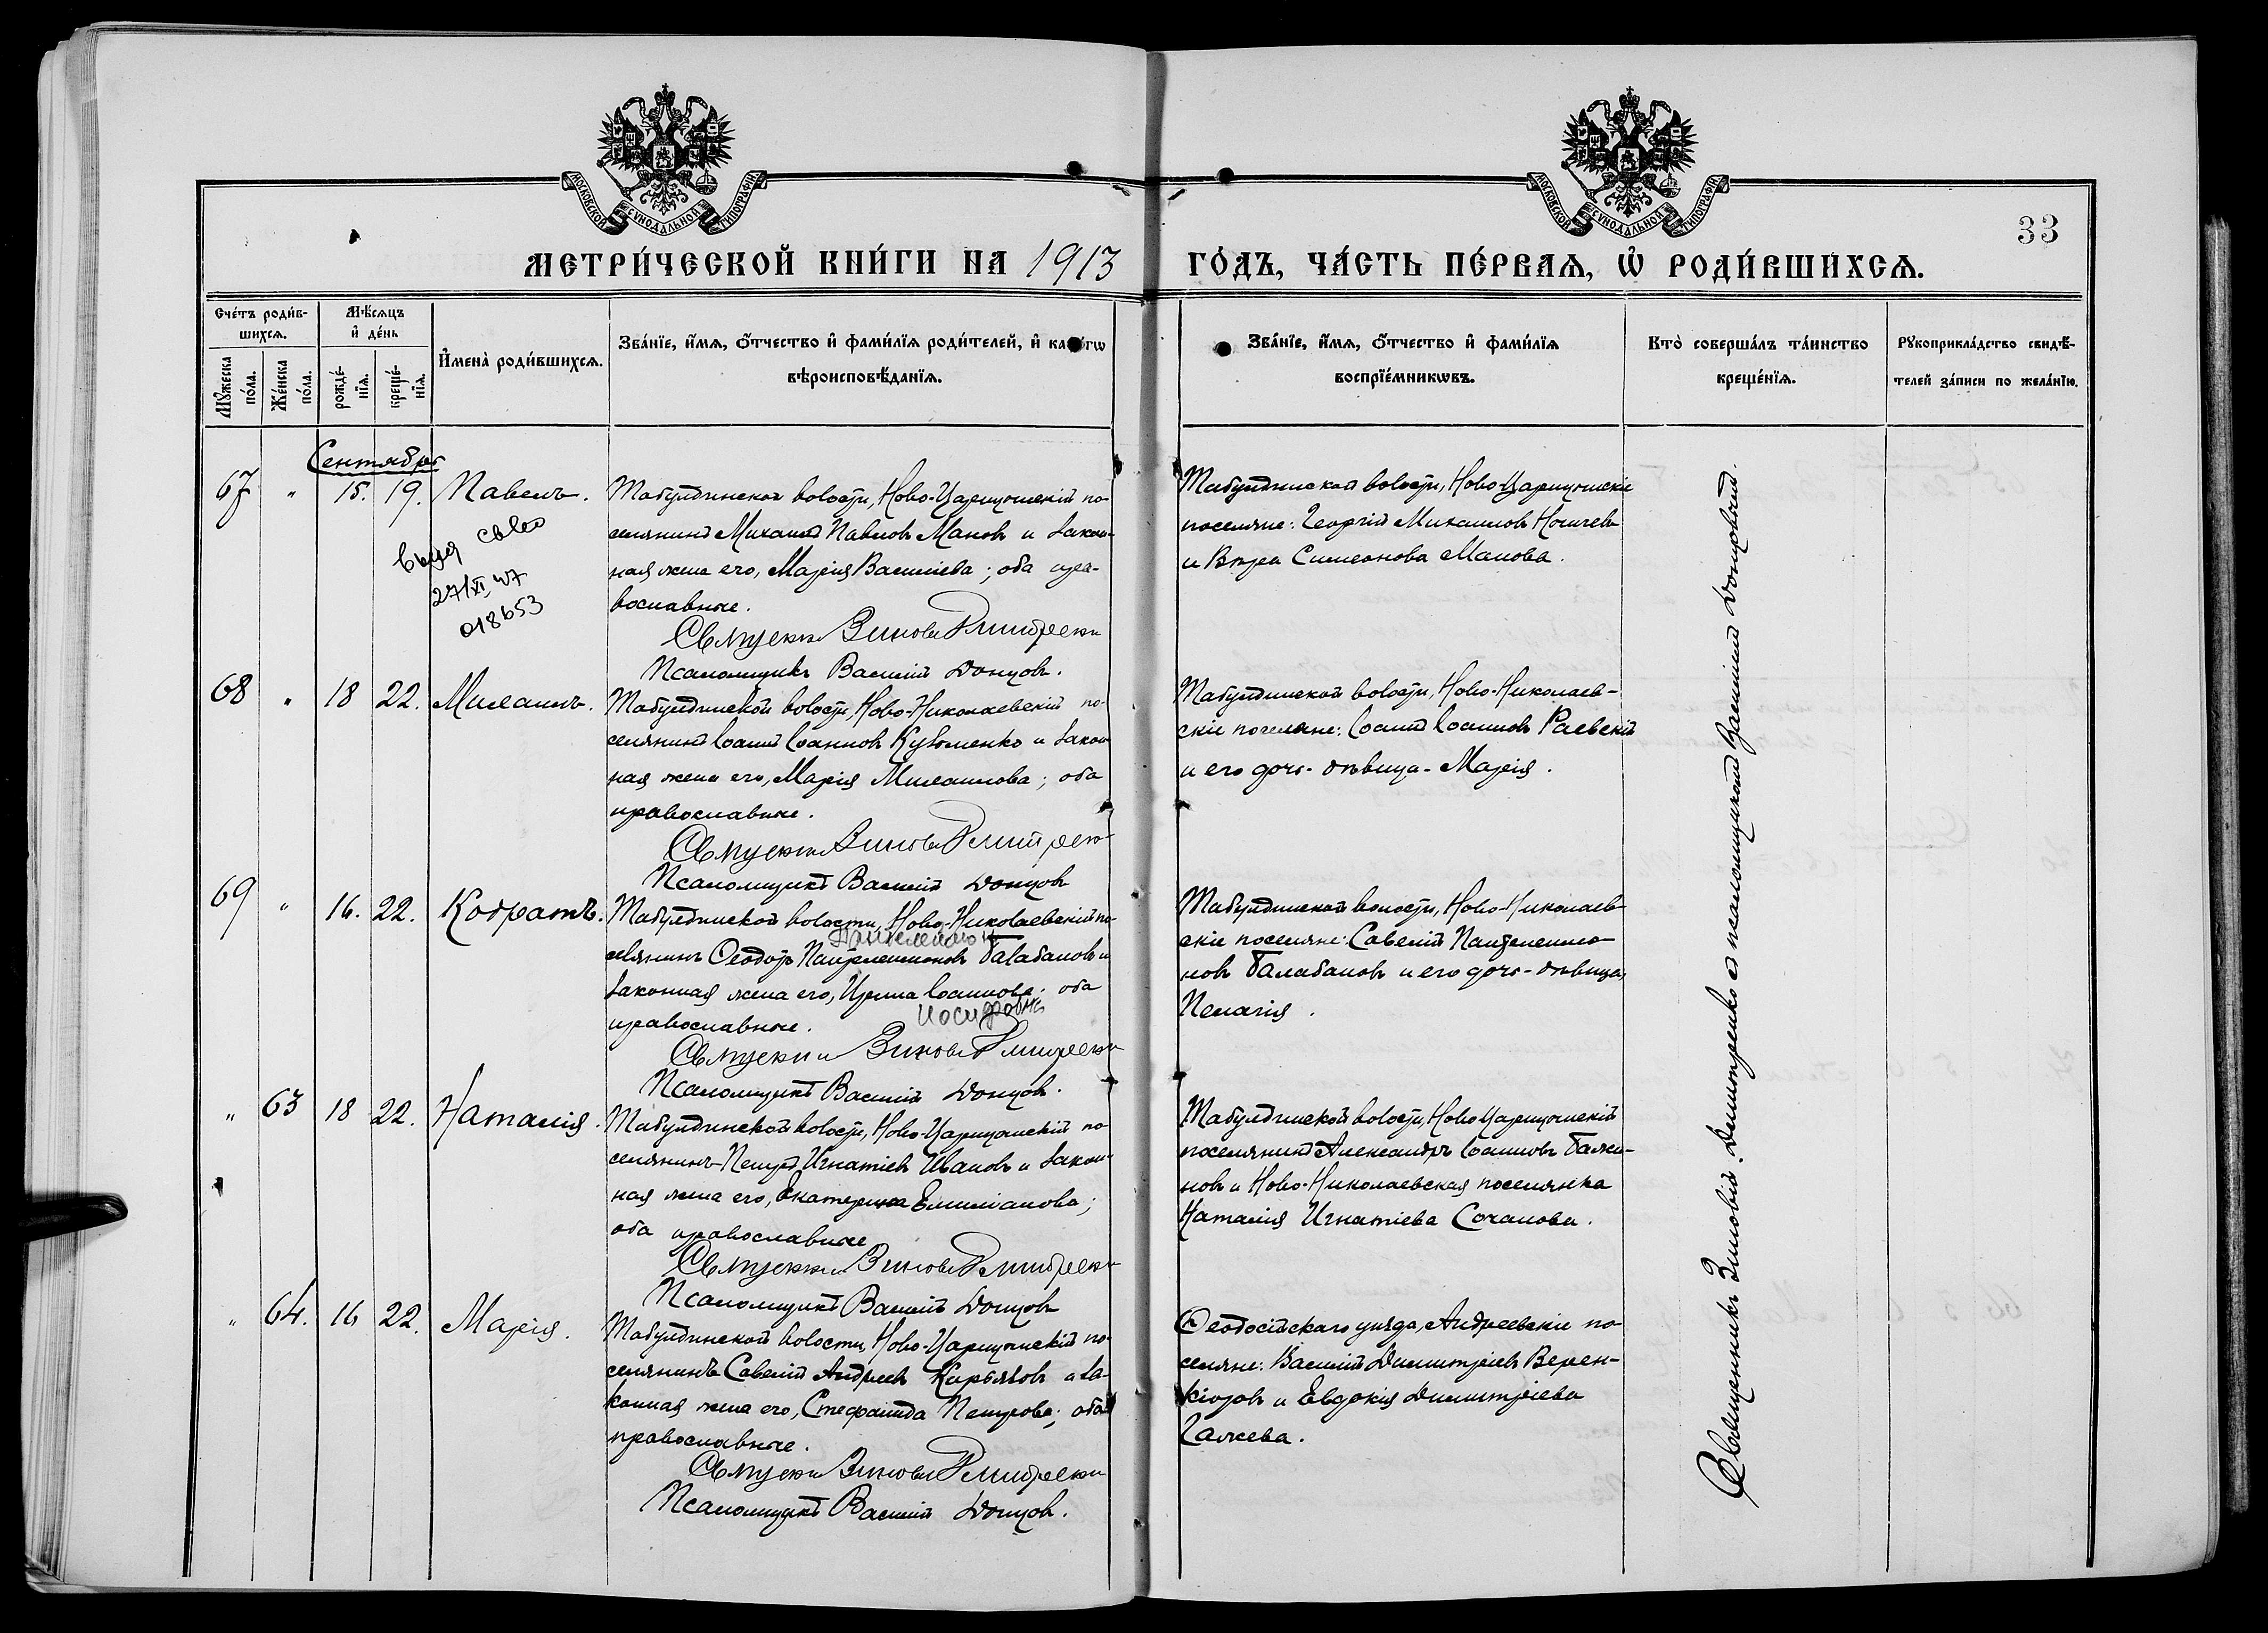 МОСКОВСКОЙ СѴНОДАЛЬНОЙ ТИПОГРАФІИ
МОСКОВСКОЙ СѴНОДАЛЬНОЙ ТИПОГРАФІИ
33
МЕТРИ́ЧЕСКОЙ КНИ́ГИ НА 1913 ГО́ДЪ, ЧА́СТЬ ПЕ́РВАѦ, Ѡ҆ РОДИ́ВШИХСѦ.
Сче́тъ роди́в-
шихсѧ.
Мѣ́сѧцъ
и҆ де́нь
Мꙋ́жеска
по́ла.
Же́нска
по́ла.
рожде́-
нїѧ.
креще́-
нїѧ.
И҆мена̀ роди́вшихсѧ.
Зва́нїе, и҆́мѧ, ѻ҆́тчество и҆ фами́лїѧ роди́телей, и҆ как гѡ
вѣроисповѣ́данїѧ.
Зва́нїе, и҆́мѧ, ѻ҆́тчество и҆ фами́лїѧ
воспрїе́мникѡвъ.
Кто̀ соверша́лъ та́инство
креще́нїѧ.
Рꙋкоприкла́дство свидѣ́-
телей за́писи по жела́нїю.
Сентябрь
67 " 15. 19. Павелъ.
27/XI, 47
018653
Табулдинской волости, Ново-Царицынскій по-
селянинъ Михаилъ Павловъ Мановъ и закон-
ная жена его, Марія Васильева; оба пра-
вославные.
Священникъ Зиновій Дмитренко
Псаломщикъ Василій Донцовъ.
Табулдинской волости, Ново-Царицынскіе
поселяне: Георгій Михаиловъ Ногичевъ
и Вѣра Симеонова Манова.
68 " 18 22. Михаилъ.
Табулдинской волости, Ново-Николаевскій по-
селянинъ Іоаннъ Іоанновъ Кузьменко и закон-
ная жена его, Марія Михаилова; оба
православные.
Священникъ Зиновій Дмитренко
Псаломщикъ Василій Донцовъ
Табулдинской волости, Ново-Николаев-
скіе поселяне: Іоаннъ Іоанновъ Раевскій
и его дочь-дѣвица-Марія.
69 " 16. 22. Кодратъ.
Табулдинской волости, Ново-Николаевскій по-
Пантелеймон
селянинъ Ѳеодоръ Пантелеимоновъ Балабановъ и
законная жена его, Ирина Іоаннова; оба
Иосифовна
православные.
Священникъ Зиновій Дмитренко
Псаломщикъ Василій Донцовъ.
Табулдинской волости, Ново-Николаев-
скіе поселяне: Савелій Пантелеимо-
новъ Балабановъ и его дочь-дѣвица,
Пелагія.
" 63 18 22. Наталія.
Табулдинской волости, Ново-Царицынскій по-
селянинъ Петръ Игнатіевъ Ивановъ и закон-
ная жена его, Екатерина Емиліанова;
оба православные
Священникъ Зиновій Дмитренко
Псаломщикъ Василій Донцовъ
Табулдинской волости, Ново Царицынскій
поселянинъ Александръ Іоанновъ Бажи-
новъ и Ново-Николаевская поселянка
Наталія Игнатіева Сочанова.
" 64. 16 22. Марія.
Табулдинской волости, Ново-Царицынскій по-
селянинъ Савелій Андреевъ Карбязовъ и за-
конная жена его, Стефанида Петрова; оба
православные.
Священникъ Зиновій Дмитренко
Псаломщикъ Василій Донцовъ.
Ѳеодосійскаго уѣзда, Андреевскіе по-
селяне: Василій Димитріевъ Верен-
кіоровъ и Евдокія Димитріева
Галжева.
Священникъ Зиновій Димитренко съ псаломщикомъ Василіемъ Донцовымъ.